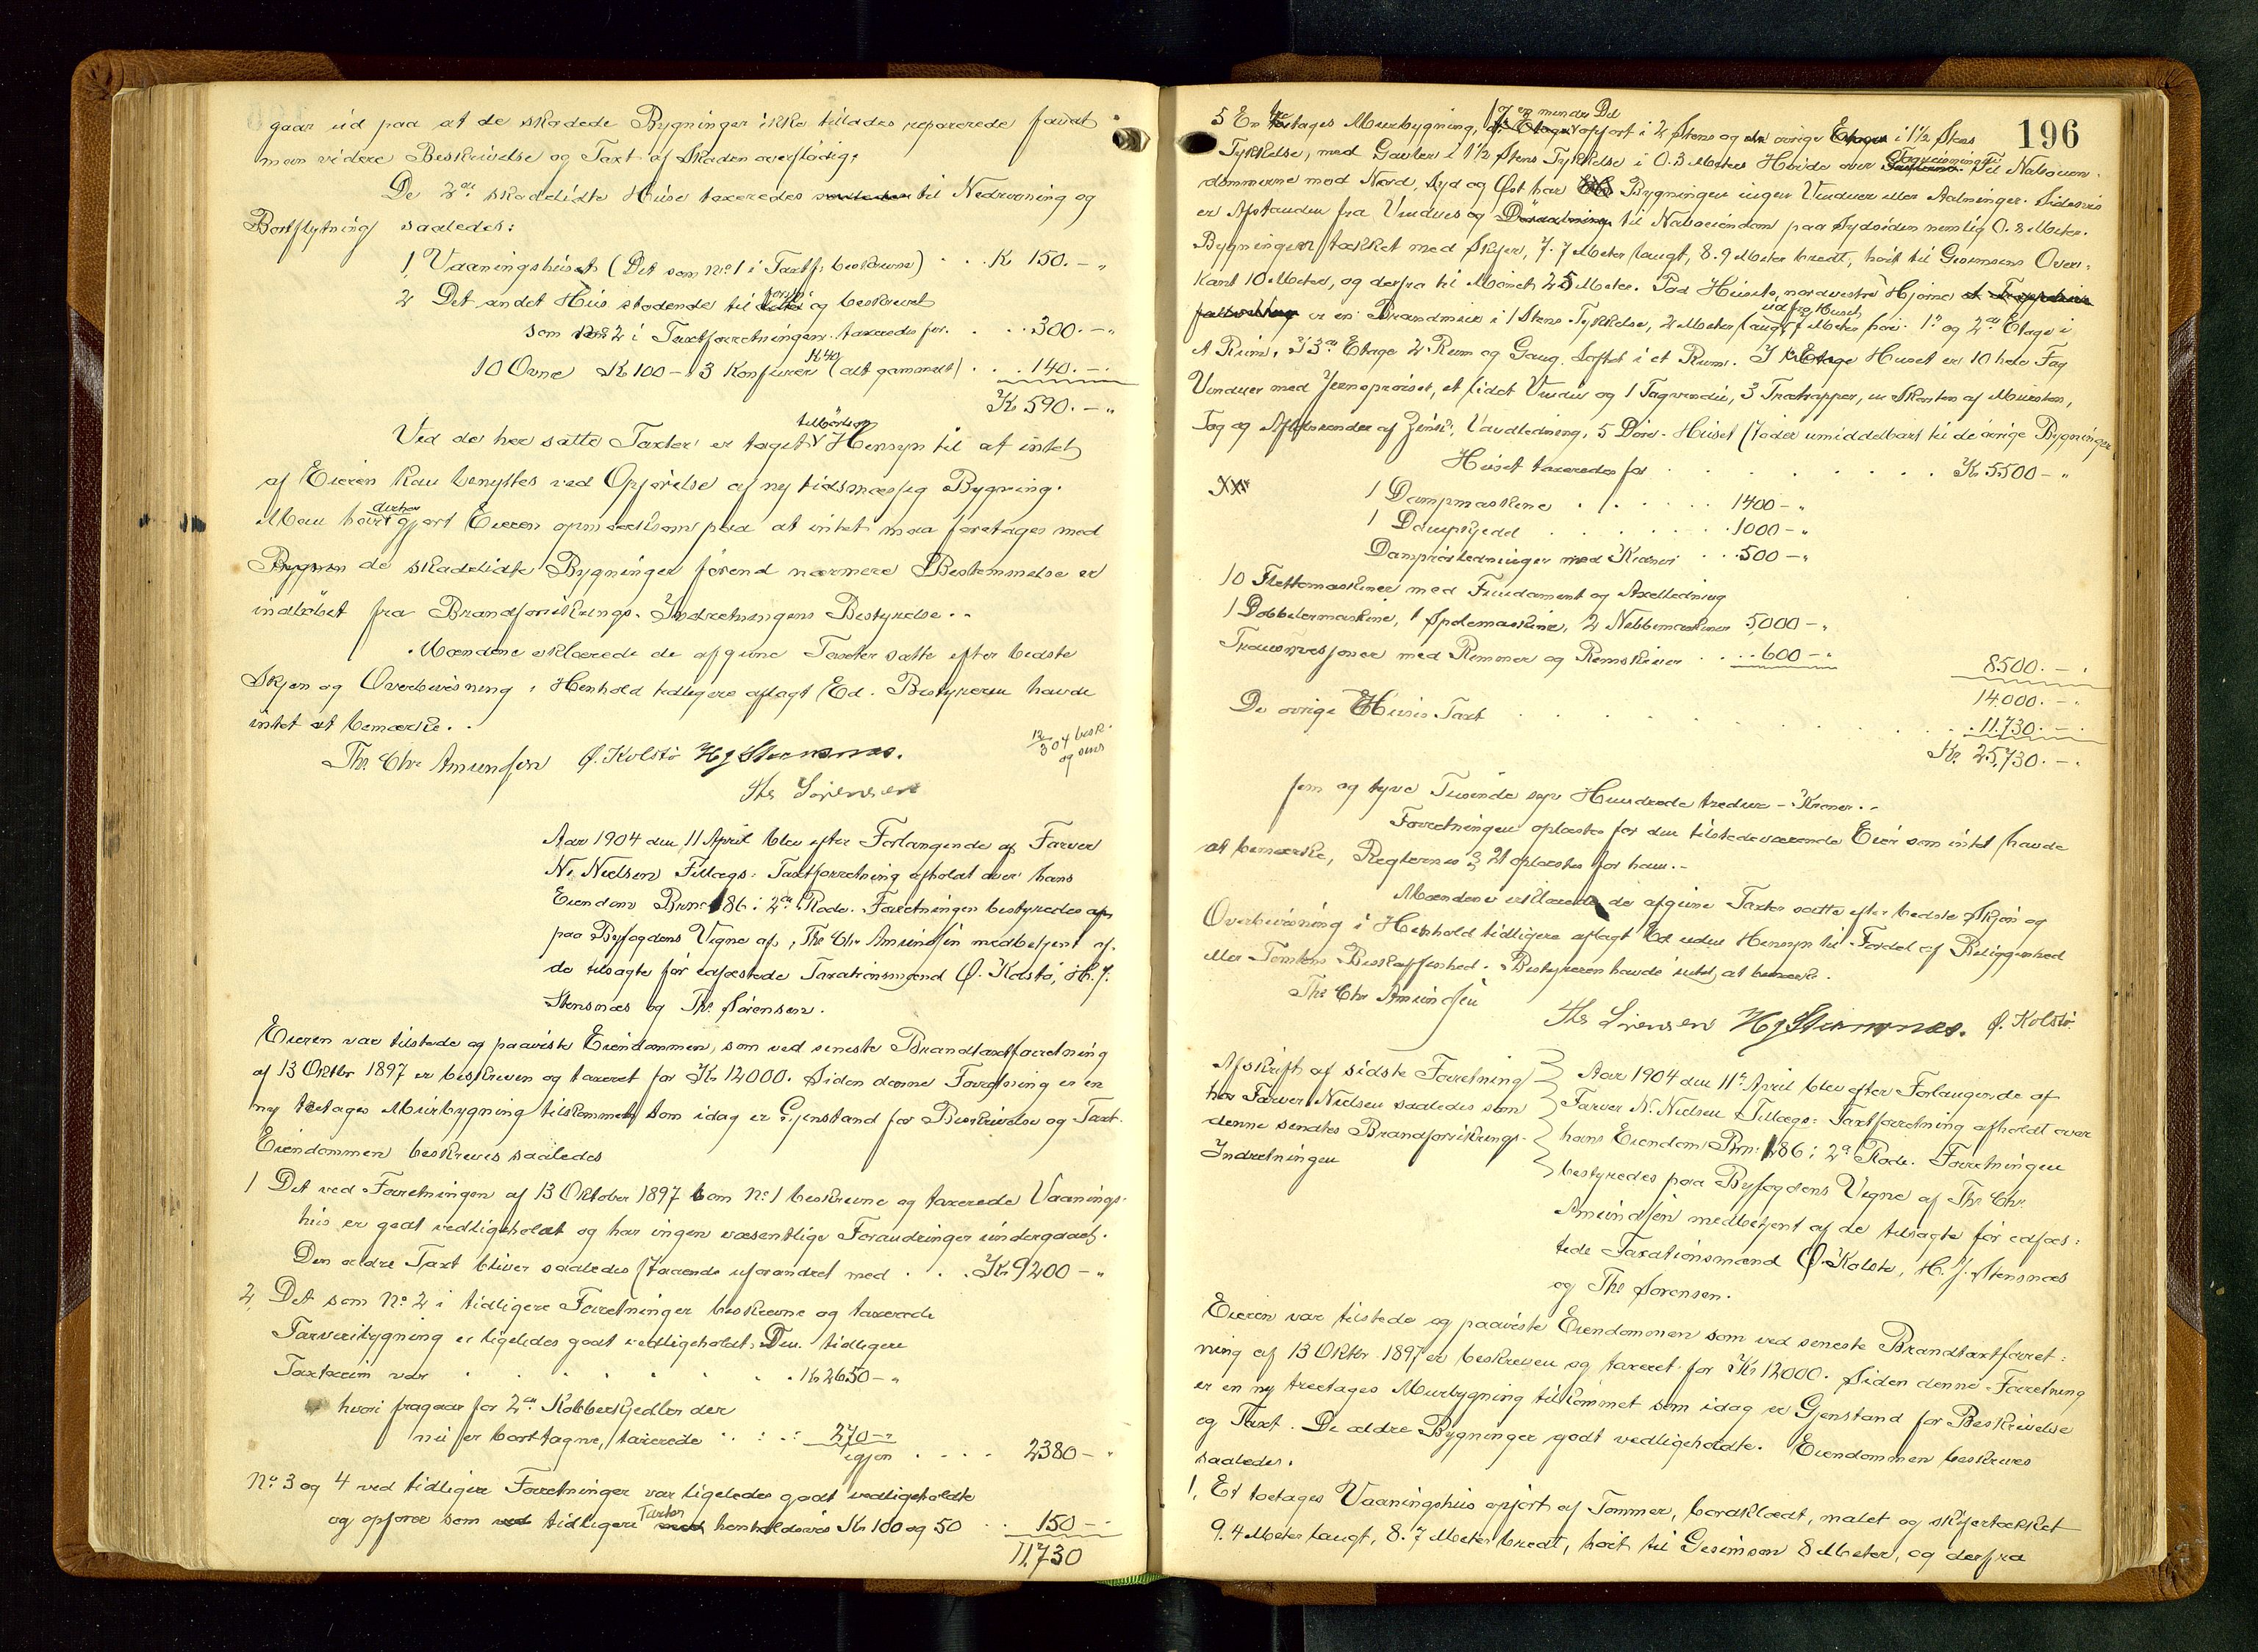 gaar ud paa at de skadede Bygninger ikke tillades reparerede fandt
man videre Beskrivelse og Taxt af Skaden overflødig.
De 2de skadelidte Huse taxeredes til Nedrivning og
Bortflytning saaledes:
1, Vaaningshuset (Det som No 1 i Taxtf. beskrevne) . . . K 150. – "
2 Det andet Hus stodende til og beskrevet
som No 2 i Taxtforretningen taxeredes for . . . 300. – "
10 Ovne Kr 100 – 3 Komfurer K 40 (alt gammelt) . . . 140. – "
Kr 590. – "
Ved de her satte Taxter er taget tilbörlig Hensyn til at intet
af Eieren kan benyttes ved Opførelse af ny tidsmæssig Bygning.
Man har derhos gjort Eieren opmærksom paa at intet maa foretages med
de skadelidte Bygninger förend nærmere Bestemmelse er
indløbet fra Brandforsikrings-Indretningens Bestyrelse. -
Mændene erklærede de afgivne Taxter satte efter bedste
Skjøn og Overbevisning i Henhold tidligere aflagt Ed. Bestyreren havde
intet at bemærke. -
Ths. Chr Amundsen Ø. Kolstø H J Stensnæs.
Ths Sørensen
12/3 04 besk. og sens
Aar 1904 den 11 April blev efter Forlangende af Farver
N. Nielsen Tillægs-Taxtforretning afholdt over hans
Eiendom Brno 186 i 2den Rode. Forretningen bestyredes
paa Byfogdens Vegne af Ths Chr Amundsen medbetjent af
de tilsagte før edfæstede Taxationsmænd Ø. Kolstø, H. J.
Stensnæs og Ths. Sørensen.
Eieren var tilstede og paaviste Eiendommen, som ved seneste Brandtaxtforretning
af 13 Oktbr 1897 er beskreven og taxeret for Kr 12000. Siden denne Forretning er en
ny treetages Murbygning tilkommet som idag er Gjenstand for Beskrivelse og Taxt.
Eiendommen beskrives saaledes
1 Det ved Forretningen af 13 Oktober 1897 som No 1 beskrevne og taxerede Vaanings-
hus er godt vedligeholdt og har ingen væsentlige Forandringer undergaaet.
Den ældre Taxt bliver saaledes staaende uforandret med . . . Kr 9200 – "
2, Det som No 2 i tidligere Forretninger beskrevne og taxerede
Farveribygning er ligeledes godt vedligeholdt. Den tidligere
Taxtsum var . . . . . . . Kr 2650 – "
hvori fragaar for 2de Kobberkjedler der
nu er borttagne, taxerede . . . 270 – "
igjen . . . . 2380 – "
No 3 og 4 ved tidligere Forretninger var ligeledes godt vedligeholdte
og opfører som tidligere Taxter henholdsvis Kr 100 og 50 . . 150 – "
11,730
196
5 En treetages Murbygning, en mindre Del opført i 2 Stens og øvrige i 1½ Stens
Tykkelse, med Gavler i 1½ Stens Tykkelse i 0.3 Meters Høide over Tagrivningen. Til Naboeien-
dommerne mod Nord, Syd og Øst har Bygningen ingen Vinduer eller Aabninger. Sidevis
er Afstanden fra Vindues og Døraabning til Naboeiendom paa Sydsiden nemlig 0.8 Meter.
Bygningen tækket med Skifer, 7.7 Meter langt, 8.9 Meter bredt, höit til Gesimsens Over-
kant 10 Meter, og derfra til Mønet 2.5 Meter. Ved Husets nordvestre Hjørne
er en Brandmur i 1 Stens Tykkelse, 2 Meter langt ud fra Huset, 7 Meter høi. 1ste og 2den Etage i
et Rum, I 3de Etage 2 Rum og Gang. Loftet i et Rum. I Huset er 10 hele Fag
Vinduer med Jernsproiser, et lidet Vindu og 1 Tagvindu, 3 Trætrapper, en Skorsten af Mursten,
Tag og Afløbsrender af Zink, Vandledning, 5 Døre. Huset støder umiddelbart til de øvrige Bygninger
Huset taxeredes for . . . . . . . Kr 5500 – "
1 Dampmaskine . . . . . . 1400 – "
1 Dampkjedel . . . . . . 1000 – "
Damprørledninger med Kraner . . . 500 – "
10 Flettemaskiner med Fundament og Axelledning
1 Doblermaskine, 1 Spolemaskine, 2 Nøbbemaskiner 5,000 – "
Transmissjoner med Remmer og Remskiver . . . . 600 – "
8500. – "
14.000. – "
De øvrige Huses Taxt . . . . . . . 11.730. – "
Kr. 25,730. – "
fem og tyve Tusinde syv Hundrede tredive – Kroner. -
Forretningen oplæstes for den tilstedeværende Eier som intet havde
at bemærke, Reglernes § 21 oplæstes for ham. -
Mændene erklærede de afgivne Taxter satte efter bedste Skjøn og
Overbevisning i Henhold tidligere aflagt Ed uden Hensyn til Fordel af Beliggenhed
eller Tomtens Beskaffenhed. Bestyreren havde intet at bemærke.
Ths Chr Amundsen
Ths Sørensen H J Stensnæs. Ø. Kolstø
Afskrift af sidste Forretning
hos Farver Nielsen saaledes som
denne sendtes Brandforsikrings-
Indretningen
Aar 1904 den 11te April blev efter Forlangende af
Farver N. Nielsen Tillægs-Taxtforretning afholdt over
hans Eiendom Brno: 186 i 2d Rode. Forretningen
bestyredes paa Byfogdens Vegne af Ths Chr.
Amundsen medbetjent af de tilsagte før edfæs-
tede Taxationsmænd Ø. Kolstø, H. J. Stensnæs
og Ths Sørensen.
Eieren var tilstede og paaviste Eiendommen som ved seneste Brandtaxtforret-
ning af 13 Oktbr 1897 er beskreven og taxeret for Kr 12000. Siden denne Forretning
er en ny treetages Murbygning tilkommet som idag er Gjenstand for Beskrivelse
og Taxt. De ældre Bygninger godt vedligeholdte. Eiendommen beskrives
saaledes.
1, Et toetages Vaaningshus opført af Tømmer, bordklædt, malet og skifertækket
9.4 Meter langt, 8.7 Meter bredt, höit til Gesimsen 8 Meter, og derfra